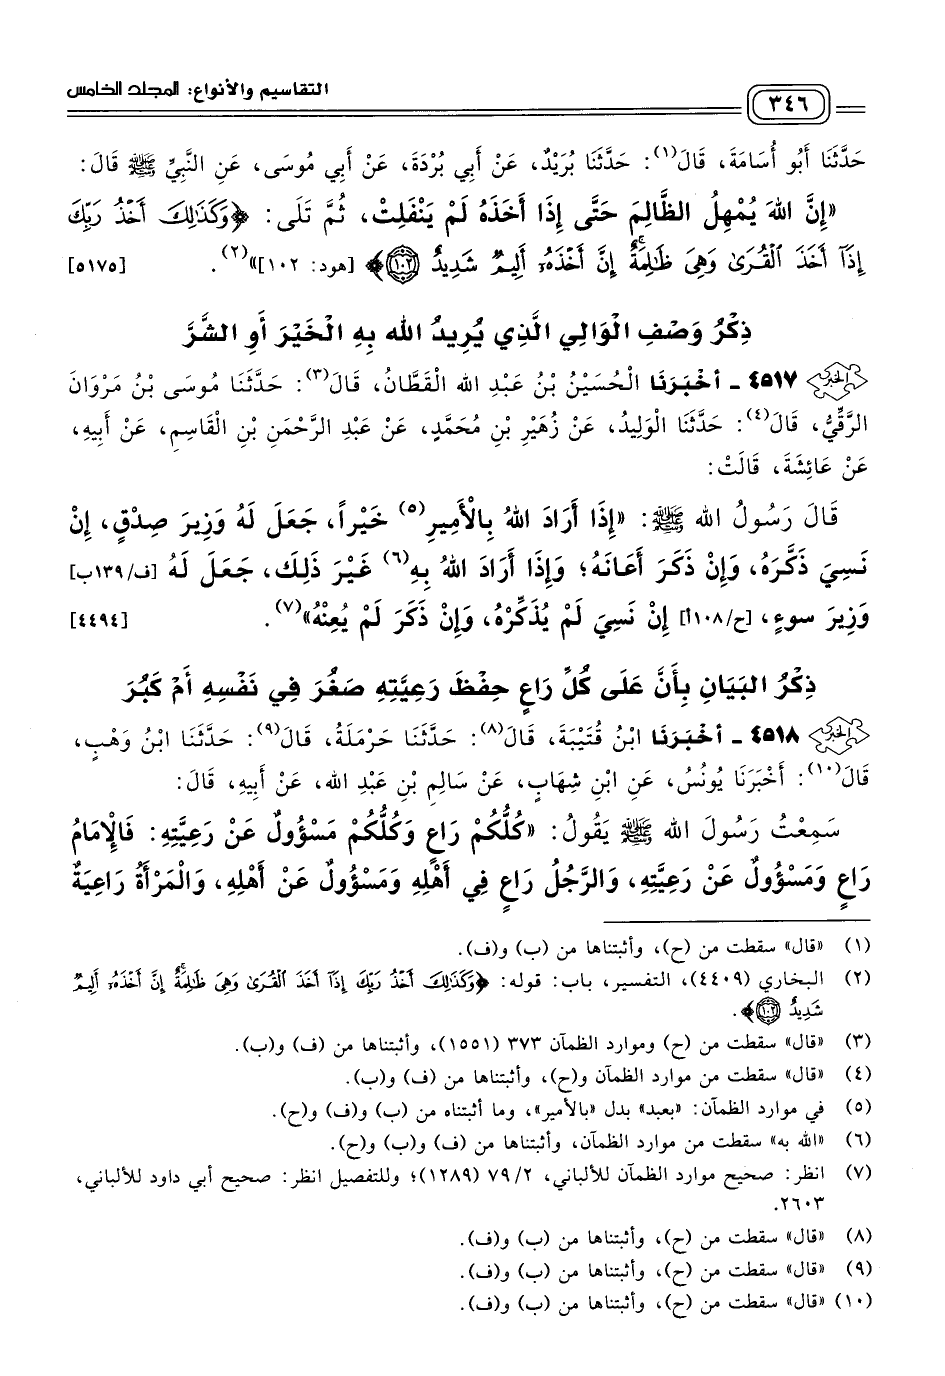 ٣٤٦ التقاسيم والأنواع: المجلد الخامس
حَدَّثَنَا أَبُو أُسَامَةَ، قَالَ(١): حَدَّثَنَا بُرَيْدٌ، عَنْ أَبِي بُرْدَةَ، عَنْ أَبِي مُوسَى، عَنِ النَّبِيِّ ﷺ قَالَ:
«إِنَّ اللهَ يُمْهِلُ الظَّالِمَ حَتَّى إِذَا أَخَذَهُ لَمْ يَنْفَلِتْ، ثُمَّ تَلَى: ﴿وَكَذَٰلِكَ أَخْذُ رَبِّكَ
إِذَآ أَخَذَ ٱلْقُرَىٰ وَهِىَ ظَٰلِمَةٌ ۚ إِنَّ أَخْذَهُۥٓ أَلِيمٌ شَدِيدٌ ١٠٢﴾ [هود: ١٠٢]»(٢). [٥١٧٥]
ذِكْرُ وَصْفِ الْوَالِي الَّذِي يُرِيدُ الله بِهِ الْخَيْرَ أَوِ الشَّرَّ
٤٥١٧ - أَخْبَرَنَا الْحُسَيْنُ بْنُ عَبْدِ الله الْقَطَّانُ، قَالَ(٣): حَدَّثَنَا مُوسَى بْنُ مَرْوَانَ
الرَّقِّيُّ، قَالَ(٤): حَدَّثَنَا الْوَلِيدُ، عَنْ زُهَيْرِ بْنِ مُحَمَّدٍ، عَنْ عَبْدِ الرَّحْمَنِ بْنِ الْقَاسِمِ، عَنْ أَبِيهِ،
عَنْ عَائِشَةَ، قَالَتْ:
قَالَ رَسُولُ الله ﷺ: «إِذَا أَرَادَ اللهُ بِالْأَمِيرِ(٥) خَيْراً، جَعَلَ لَهُ وَزِيرَ صِدْقٍ، إِنْ
نَسِيَ ذَكَّرَهُ، وَإِنْ ذَكَرَ أَعَانَهُ؛ وَإِذَا أَرَادَ اللهُ بِهِ(٦) غَيْرَ ذَلِكَ، جَعَلَ لَهُ [ف/١٣٩ب]
وَزِيرَ سوءٍ، [ح/١٠٨أ] إِنْ نَسِيَ لَمْ يُذَكِّرْهُ، وَإِنْ ذَكَرَ لَمْ يُعِنْهُ»(٧). [٤٤٩٤]
ذِكْرُ الْبَيَانِ بِأَنَّ عَلَى كُلِّ رَاعٍ حِفْظَ رَعِيَّتِهِ صَغُرَ فِي نَفْسِهِ أَمْ كَبُرَ
٤٥١٨ - أَخْبَرَنَا ابْنُ قُتَيْبَةَ، قَالَ(٨): حَدَّثَنَا حَرْمَلَةُ، قَالَ(٩): حَدَّثَنَا ابْنُ وَهْبٍ،
قَالَ(١٠): أَخْبَرَنَا يُونُسُ، عَنِ ابْنِ شِهَابٍ، عَنْ سَالِمِ بْنِ عَبْدِ الله، عَنْ أَبِيهِ، قَالَ:
سَمِعْتُ رَسُولَ الله ﷺ يَقُولُ: «كُلُّكُمْ رَاعٍ وَكُلُّكُمْ مَسْؤُولٌ عَنْ رَعِيَّتِهِ: فَالْإِمَامُ
رَاعٍ وَمَسْؤُولٌ عَنْ رَعِيَّتِهِ، وَالرَّجُلُ رَاعٍ فِي أَهْلِهِ وَمَسْؤُولٌ عَنْ أَهْلِهِ، وَالْمَرْأَةُ رَاعِيَةٌ
(١) «قال» سقطت من (ح)، وأثبتناها من (ب) و(ف).
(٢) البخاري (٤٤٠٩)، التفسير، باب: قوله: ﴿وَكَذَٰلِكَ أَخْذُ رَبِّكَ إِذَآ أَخَذَ ٱلْقُرَىٰ وَهِىَ ظَٰلِمَةٌ ۚ إِنَّ أَخْذَهُۥٓ أَلِيمٌ
شَدِيدٌ ١٠٢﴾.
(٣) «قال» سقطت من (ح) وموارد الظمآن ٣٧٣ (١٥٥١)، وأثبتناها من (ف) و(ب).
(٤) «قال» سقطت من موارد الظمآن و(ح)، وأثبتناها من (ف) و(ب).
(٥) في موارد الظمآن: «بعبد» بدل «بالأمير»، وما أثبتناه من (ب) و(ف) و(ح).
(٦) «الله به» سقطت من موارد الظمآن، وأثبتناها من (ف) و(ب) و(ح).
(٧) انظر: صحيح موارد الظمآن للألباني، ٧٩/٢ (١٢٨٩)؛ وللتفصيل انظر: صحيح أبي داود للألباني،
٢٦٠٣.
(٨) «قال» سقطت من (ح)، وأثبتناها من (ب) و(ف).
(٩) «قال» سقطت من (ح)، وأثبتناها من (ب) و(ف).
(١٠) «قال» سقطت من (ح)، وأثبتناها من (ب) و(ف).